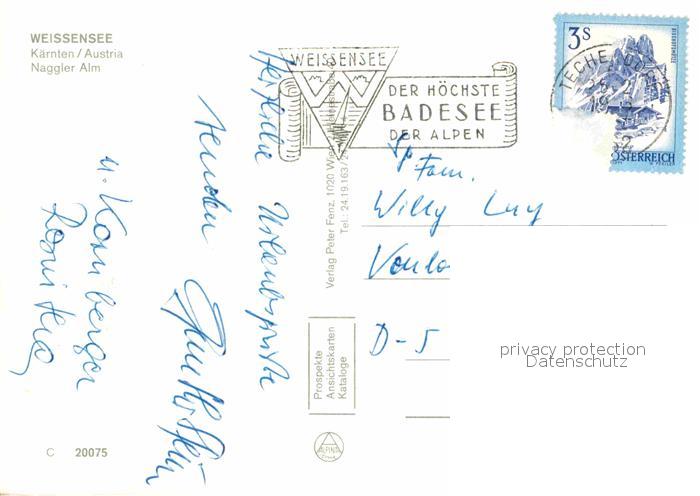 WEISSENSEE
Kärnten / Austria
Naggler Alm
WEISSENSEE
DER HÖCHSTE
BADESEE
DER ALPEN
3 S
TECHENDORF
ÖSTERREICH
Herzliche Urlaubsgrüße
senden
u. Kornberger
Verlag Peter Fenz, 1020 Wien
Tel.: 24.19.163/2
Fam.
Willy
D-5
privacy protection
Datenschutz
Prospekte
Ansichtskarten
Kataloge
ALPINA
C 20075